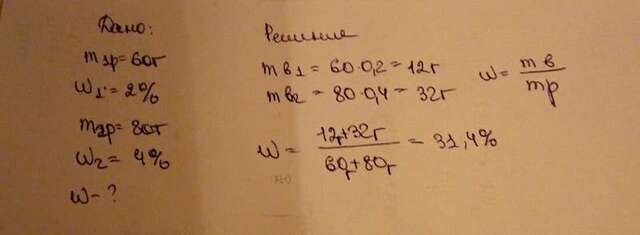 Дано:
m1р = 60г
W1 = 2%
m2р = 80г
W2 = 4%
W - ?
Решение
mв1 = 60·0,2 = 12г
mв2 = 80·0,4 = 32г
W = mв / mр
W = 12г+32г / 60г+80г = 31,4%